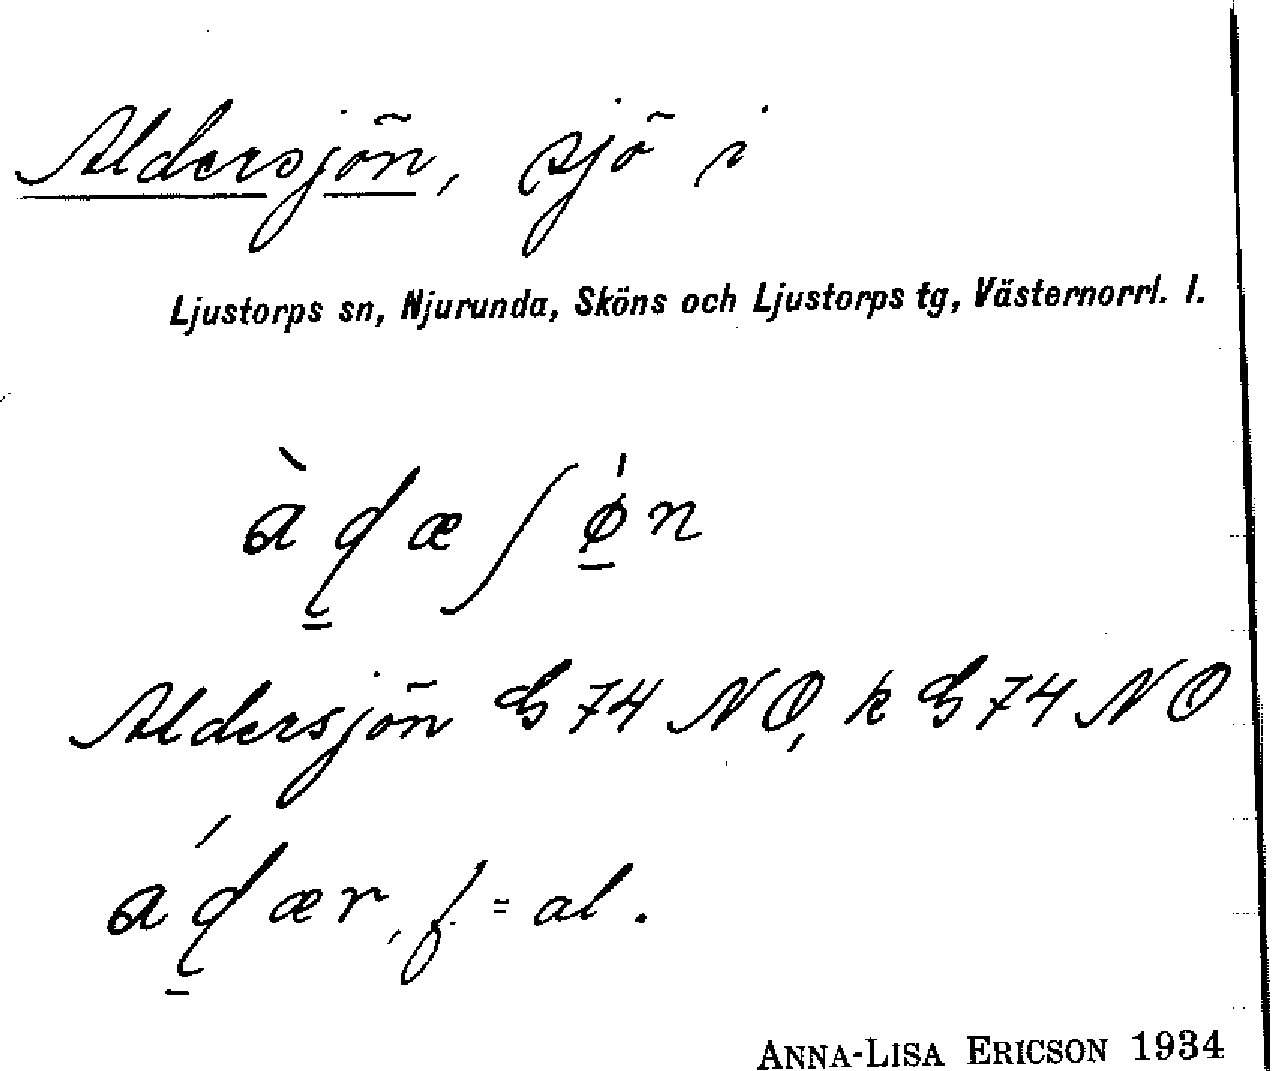 Aldersjön, sjö i
Ljustorps sn, Njurunda, Sköns och Ljustorps tg, Västernorrl. l.
àɖæʃǿn
Aldersjön G 74 NO, k G 74 NO
áɖær, f. = al.
ANNA-LISA ERICSON 1934